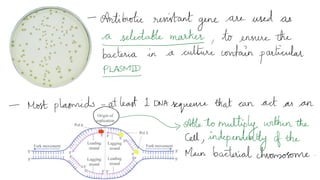 - Antibiotic resistant gene are used as
a selectable marker, to ensure the
bacteria in a culture contain particular
PLASMID
- Most plasmids - atleast 1 DNA sequence that can act as an
Origin of
replication
→ Able to multiply within the
Cell, independently of the
Main bacterial chromosome.
Pol ε
Pol δ
Leading
strand
Lagging
strand
Fork movement
Fork movement
Lagging
strand
Leading
strand